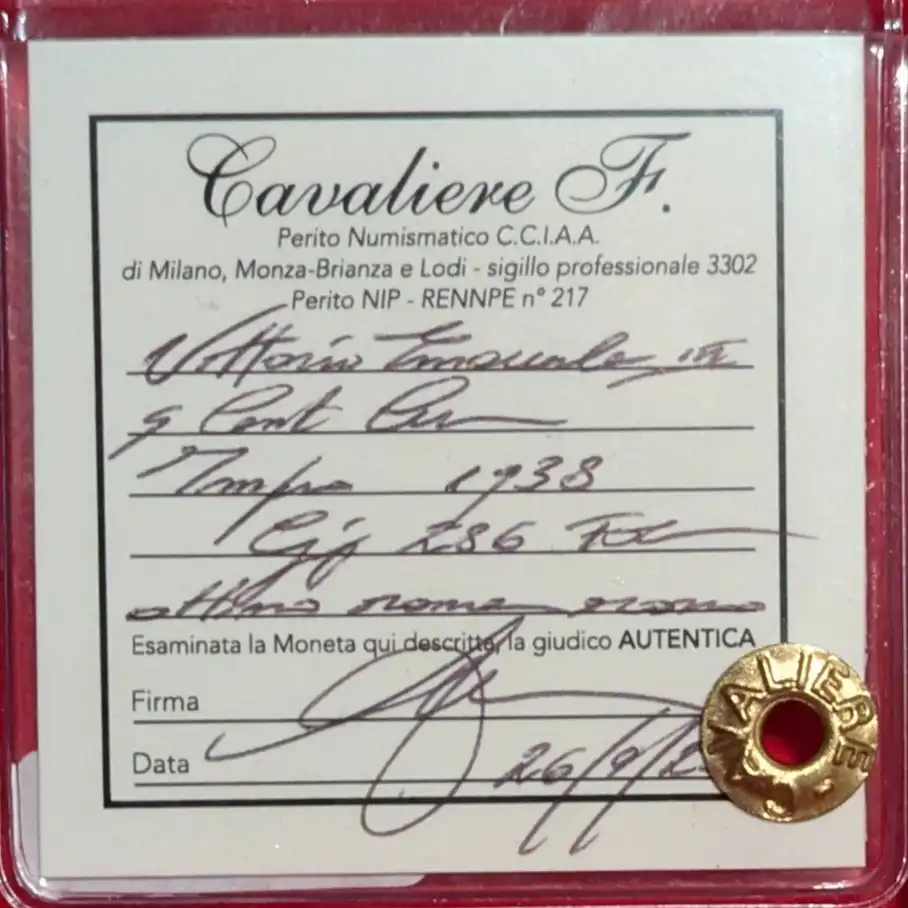 Cavaliere F.
Perito Numismatico C.C.I.A.A.
di Milano, Monza-Brianza e Lodi - sigillo professionale 3302
Perito NIP - RENNPE n° 217
Vittorio Emanuele III
5 Cent Cu
Impero 1938
Gig 286 FDC
ottimo rame rosso
Esaminata la Moneta qui descritta, la giudico AUTENTICA
Firma
Data 26/9/2
CAVALIERE F.